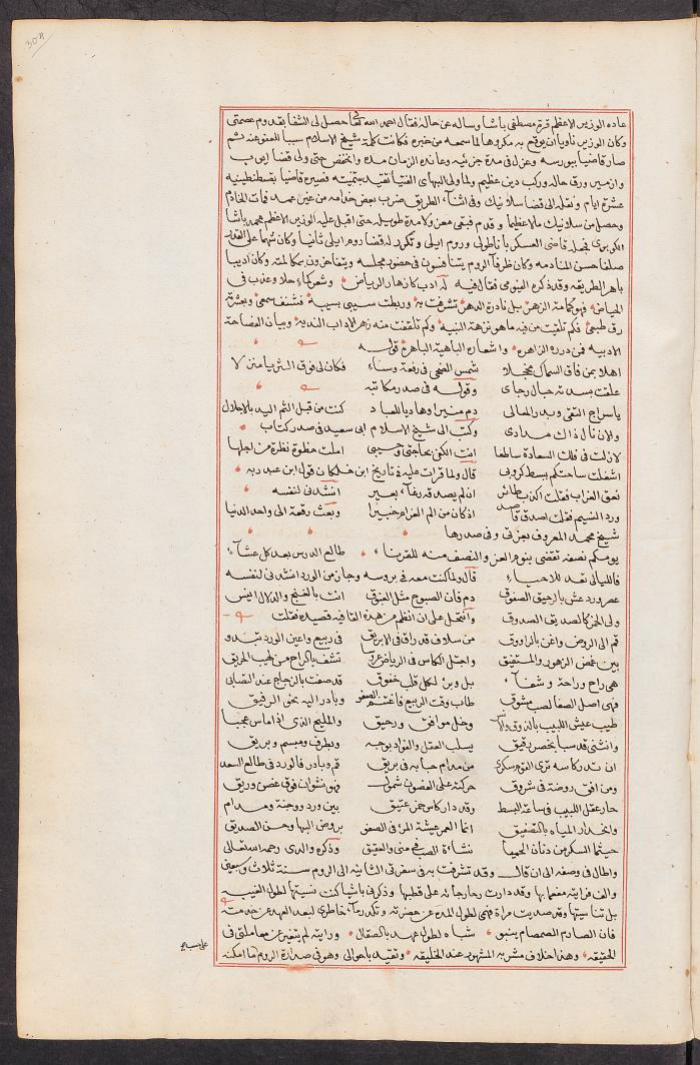 308
عاده الوزير الاعظم قره مصطفى باشا وساله عن حاله فقال احمد الله تعالى حصل لى الشفا بقدوم عصمتى
وكان الوزير ناويا ان يوقع به مكروها لما سمعه من خبره فكانت كلمة شيخ الاسلام سببا للعفو عنه ثم
صار قاضيا ببورسه وعزل فى مدة جزئيه وعانده الزمان مده وانخفض حتى ولى قضا
وازمير ورق حاله وركب دين عظيم ولما ولى البهاى الفتيا تقيد بتميته فصيره قاضيا بقسطنطينيه
عشرة ايام ونقله الى قضا سلانيك وفى اثناء الطريق ضرب بعض خدامه من غير عمد فمات الخادم
وحصل من سلانيك مالا عظيما وقدم فبقى معزولا مدة طويله حتى اقبل عليه الوزير الاعظم محمد باشا
الكوبرى فجعله قاضى العسكر باناطولى وروم ايلى وتكرر له قضا روم ايلى ثانيا وكان شهما على القدر
صلفا حسن المنادمه وكان ظرفا الروم يتنافسون فى حضور مجلسه ويتفاخرون بمكالمته وكان اديبا
باهر الطريقه وقد ذكره البيومى فقال فيه له ادب كازهار الرياض وشعر كماء حلا وعذب فى
الحياض فهو كمامة الزهر بل نادرة الدهر تشرفت به وربطت سيبى بسيبه فشنف سمعى وبعثرته
رق طبعى فكم تلقيت من فيه ما هو نزهة النبيه وكم تلقفت منه زهر الاداب النديه وبيان الفصاحة
الادبيه فى درره الزاهره واشعاره الباهية الباهره قوله
اهلا بمن فاق السماك مخجلا شمس الضحى فى رفعة وسناء فكان لى فوق الثريا منزلا
علقت بسدته حبال رجاى وقوله فى صدر مكاتبه
ياسراج التقى وبدر المعالى دم منيرا وهاديا للعباد كنت من قبل الثم اليد بالاجلال
والان نال ذاك مدادى وكتب الى شيخ الاسلام ابى سعيد فى صدر كتاب
لازلت فى فلك السعادة ساطعا انت الكفى بحاجتى وحسبى املت حظوة نظرة من اجلها
اشغلت ساحتكم ببسط كروبى قال ولما قرات عليه فى تاريخ ابن خلكان قول ابن عبد ربه
نعق الغراب فقلت اكذب طائر ان لم يصدقه رغاء بعير انشد فى لنفسه
ورد النسيم فقلت اصدق قاصد اذ كان من الم الغرام خبيرا وبعث رقعة الى واحد الدنيا
شيخ محمد المعروف بعزتى وفى صدرها
يومكم نصفه تقضى بنوم العز والنصف منه للقرناء طالع الدرس بعد كل عشاء
فالليالى تعد للاحياء قال ولما كنت معه فى بروسه وجاز من الورد انشد فى لنفسه
عصر ورد عش بالرحيق الصفوق دم فان الصبوح مثل الغبوق انت بالغنج والدلال انيس
ولى الخمر كالصديق الصدوق واقتحل على ان انظم من هذه القافيه قصيده فقلت
قم الى الروض واغن بالراووق من سلاف قد راق فى الابريق فى ربيع واعين الورد تبدو
بين غض الزهور والمستفيق واجتل الكاس فى الرياض تشف بالراح من لهيب الحريق
هى راح وراحة وشفاء بل وبر لكل قلب خفوق قد صفت بالزجاج عند التصابى
فهى اصل الصفا لصب مشوق طاب وقت الربيع فاغتنم الصفو وبادر اليه بخى الرفيق
طيب عيش اللبيب بالذوق والا وخل موافق ورحيق والمليح الذى اذا ماس عجبا
وانثنى قد سبا بخصر دقيق يسلب العقل والفواد بوجه وبطرف ومبسم وبريق
ان تدر كاسه ترى القوم سكرى من مدام حبابه فى بريق قم وبادر فالورد فى طالع السعد
ومن افق روضة فى شروق حركته على الغصون شمول فهو نشوان فوق غصن وريق
حار عقل اللبيب فى ساعة البسط وقد دار كاس خمر عتيق بين ورد ووجنة ومدام
وانحدار المياه بالتصفيق انما العمر عيشة المرء فى الصفو بروض البها وحسن الصديق
حيثما السكر من دنان الحميا نشاءة الصب فى منى والعقيق وذكره والدى رحمه الله تعالى
واطال فى وصفه الى ان قال وقد تشرفت به فى سفرتى الثانيه الى الروم سنة ثلاث وسبعين
والف فرايته مفعما بها وقد دارت رحا رجائه على قطبها وذكرنى باشيا كنت نسيتها لطول الغيبه
بل تناسيتها وقد صديت مراة فهمى لطول المده عن حضرته وتكدر ماء خاطرى لبعد العهد عن خدمته
فان الصارم الصمصام ينبو شباه لطول عهد بالصقال ورايته لم يتغير عن معاملتى فى
الحقيقه وهذا خلاف مشربه المشهور عند الخليقه وتقيد باحوالى وهو فى صدارة الروم ما امكنه